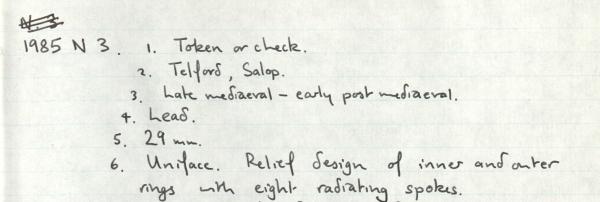 N. 3
1985 N 3. 1. Token or check.
2. Telford, Salop.
3. Late mediaeval - early post mediaeval.
4. Lead.
5. 29 mm.
6. Uniface. Relief design of inner and outer
rings with eight radiating spokes.